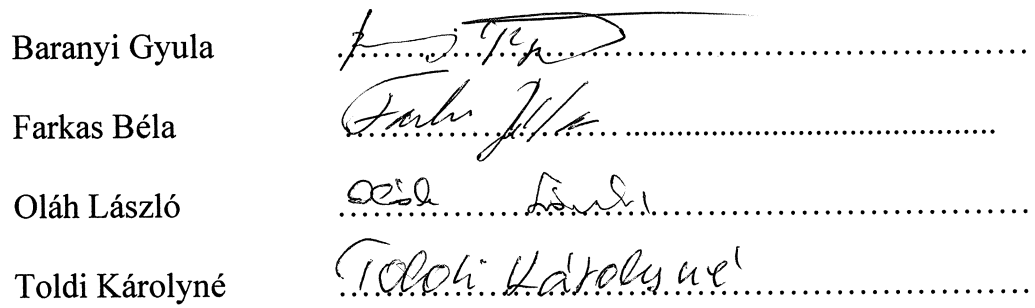 Baranyi Gyula
Farkas Béla Farkas Béla
Oláh László Oláh László
Toldi Károlyné Toldi Károlyné